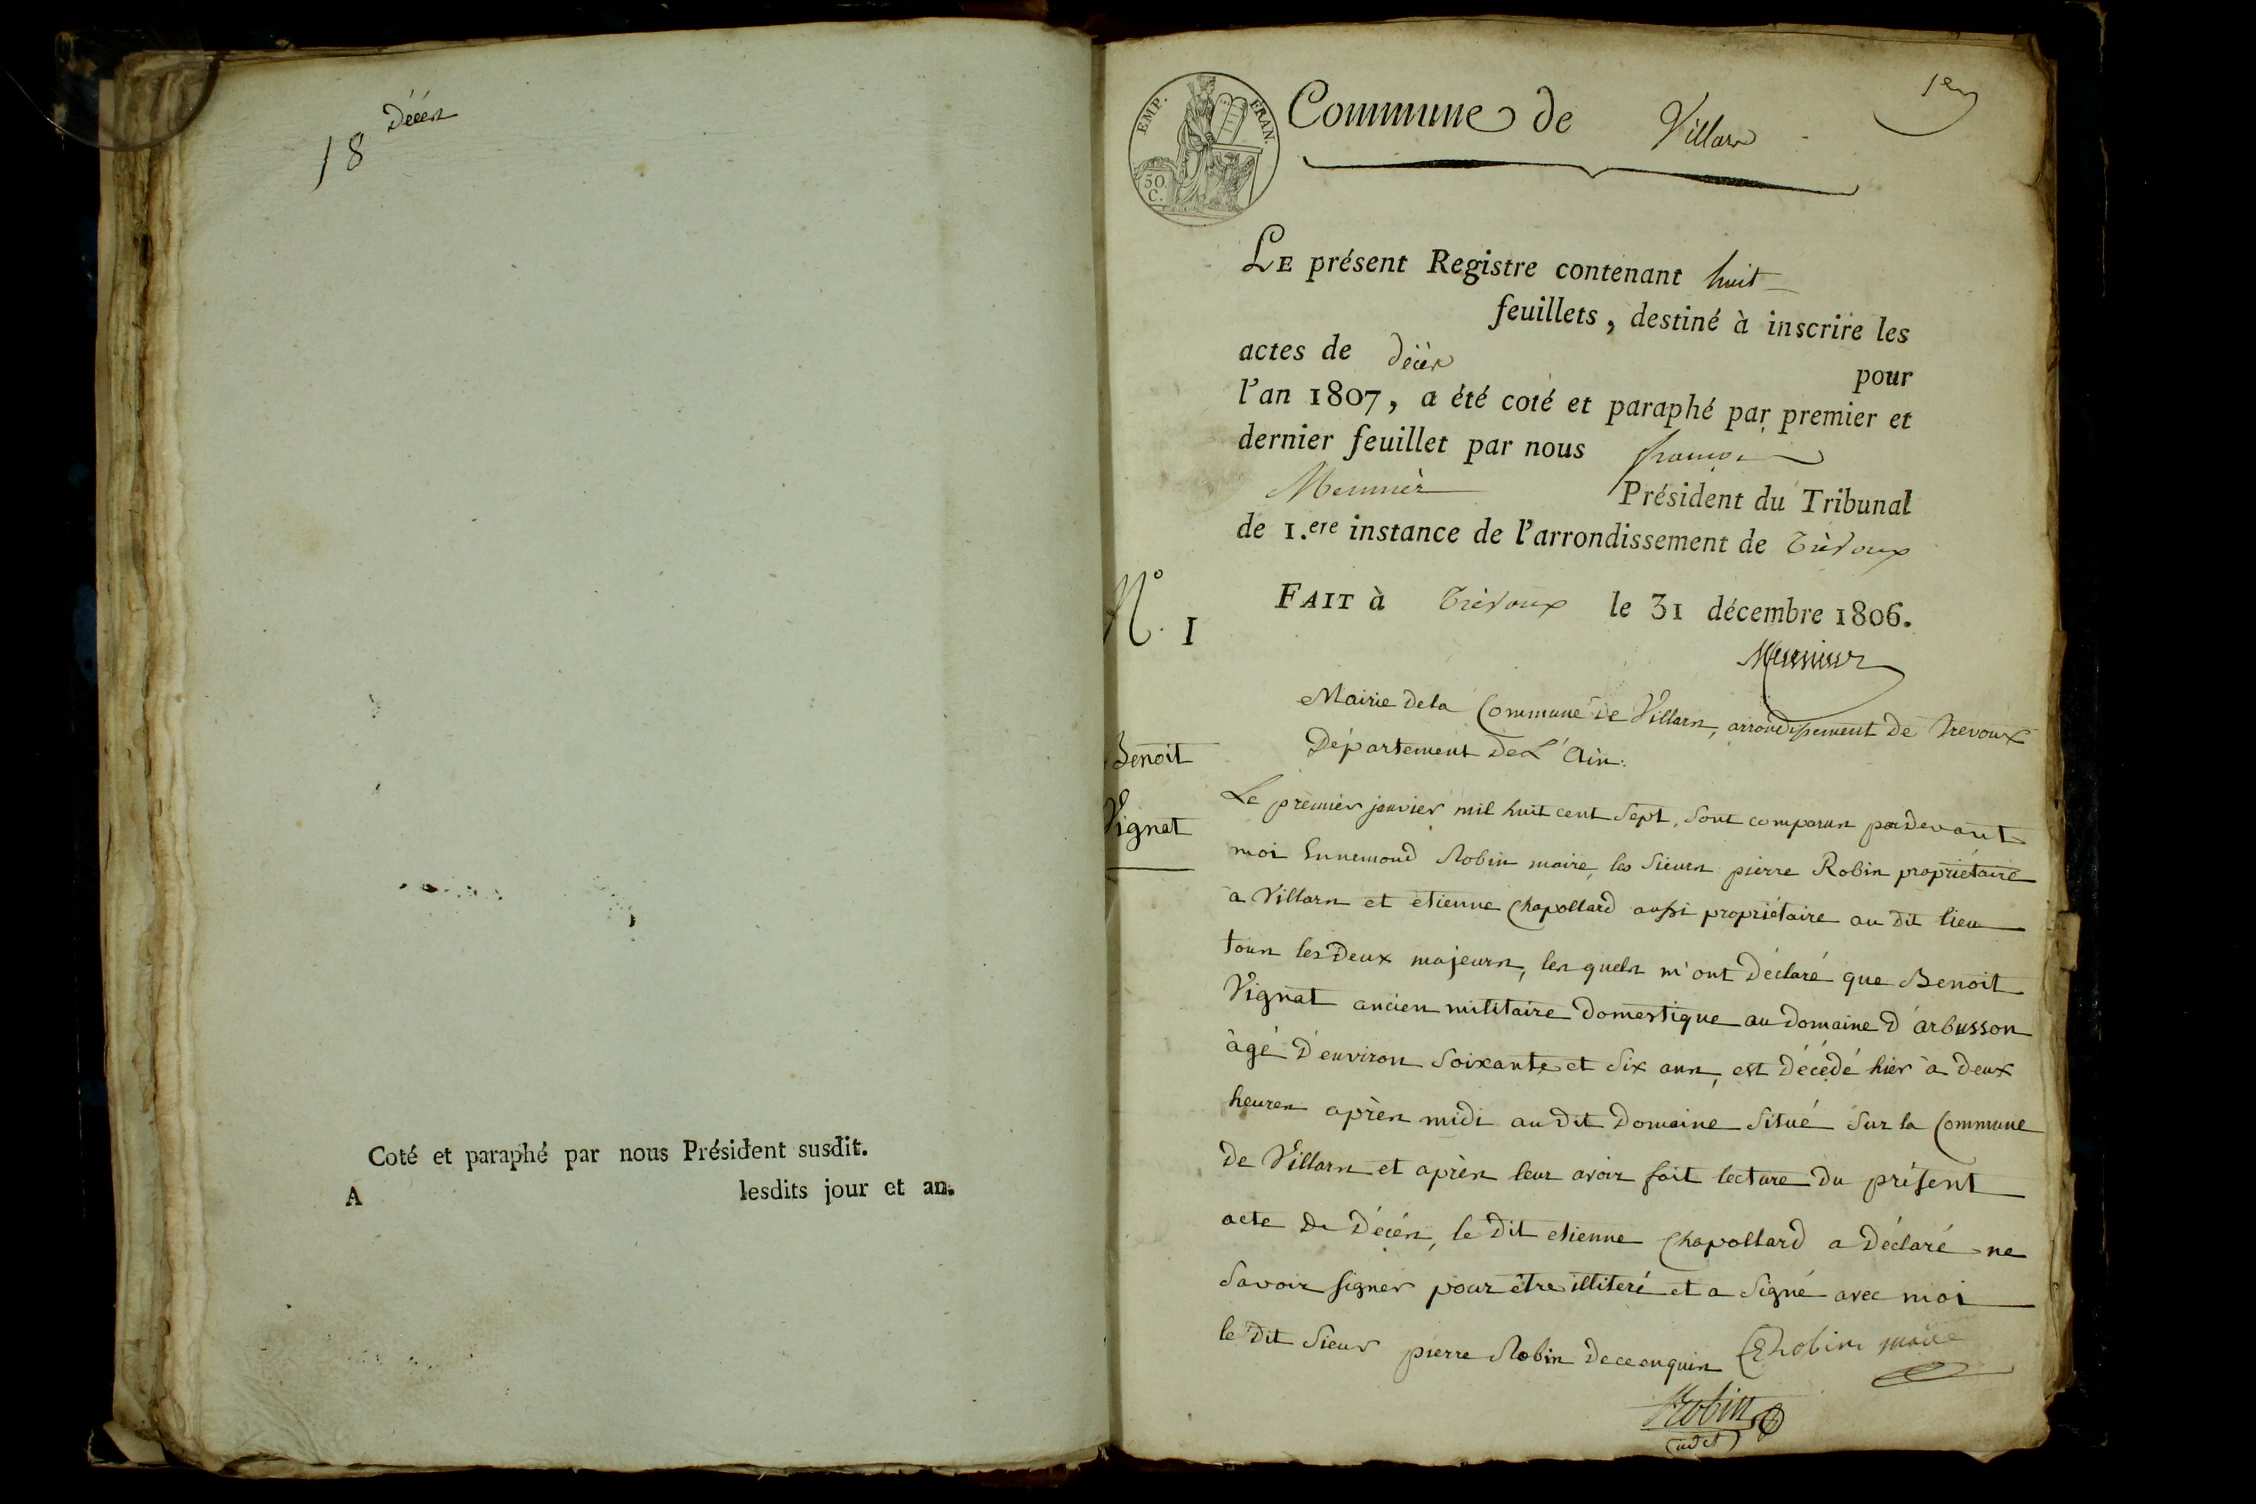 Décès
18
Coté et paraphé par nous Président susdit.
A lesdits jour et an.
1er
EMP. FRAN.
50.
C.
Commune de Villars
LE présent Registre contenant huit
feuillets, destiné à inscrire les
actes de décès pour
l'an 1807, a été coté et paraphé par premier et
dernier feuillet par nous françois
Meunier Président du Tribunal
de 1.ere instance de l'arrondissement de Trévoux
FAIT à Trévoux le 31 décembre 1806.
Meunier
N.o 1
Mairie de la Commune de Villars, arrondissement de Trevoux
Département de L'Ain.
Benoit
Vignat
Le premier janvier mil huit cent sept, sont comparus pardevant
moi Ennemond Robin maire, les sieurs pierre Robin propriétaire
a Villars et etienne Chapollard aussi propriétaire au dit lieu
tous les deux majeurs, les quels m'ont déclaré que Benoit
Vignat ancien militaire domestique au domaine d'arbusson
âgé d'environ soixante et six ans, est décédé hier à deux
heures après midi au dit domaine situé sur la Commune
de Villars et après leur avoir fait lecture du présent
acte de décès, le dit etienne Chapollard a déclaré ne
savoir signer pour être illiteré et a signé avec moi
le dit sieur pierre Robin de ce enquis E Robin maire
Robin
cadet